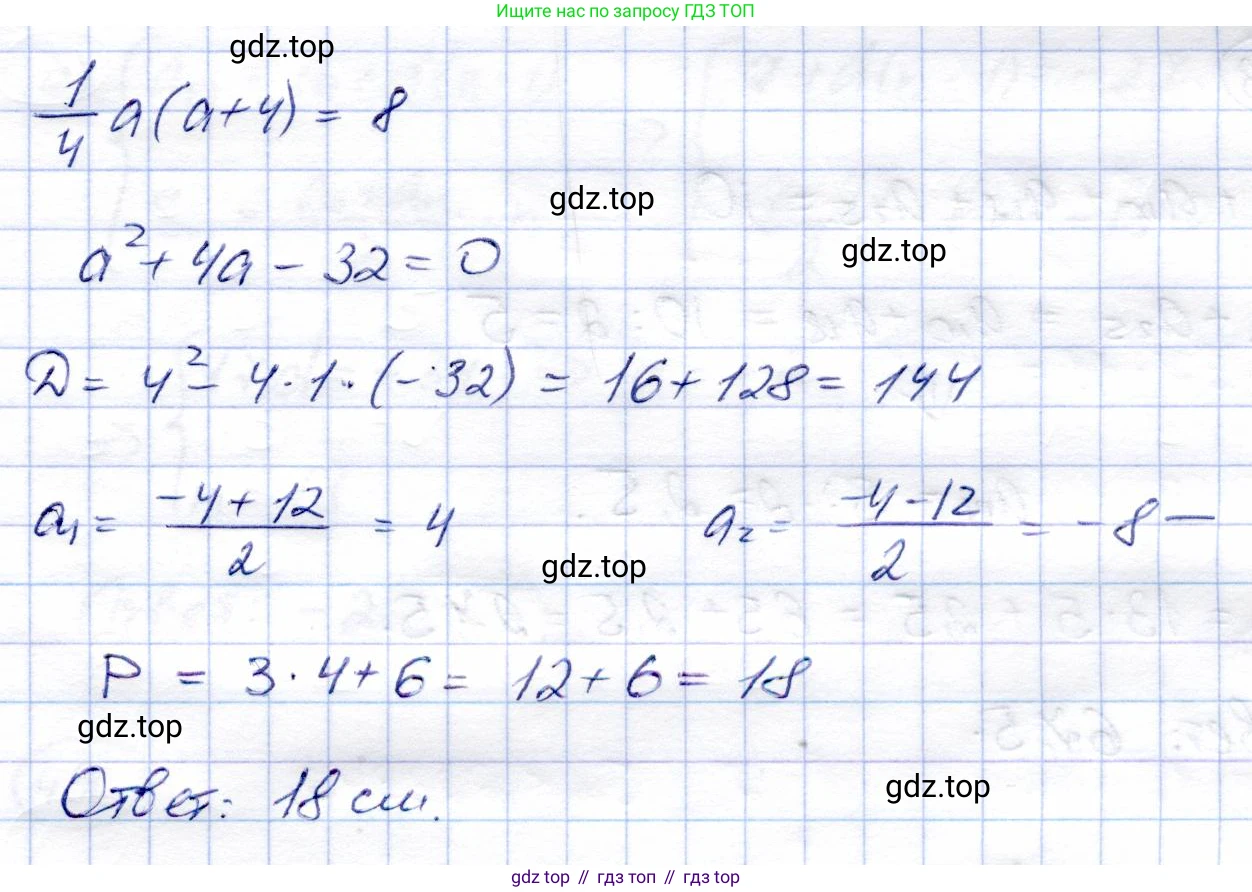 Ищите нас по запросу ГДЗ ТОП
gdz.top
1/4 a(a+4) = 8
gdz.top
a² + 4a - 32 = 0
gdz.top
D = 4² - 4 · 1 · (-32) = 16 + 128 = 144
a₁ = (-4 + 12)/2 = 4 a₂ = (-4 - 12)/2 = -8 —
gdz.top
P = 3 · 4 + 6 = 12 + 6 = 18
gdz.top
Ответ: 18 см.
gdz.top
gdz top // гдз топ // гдз top